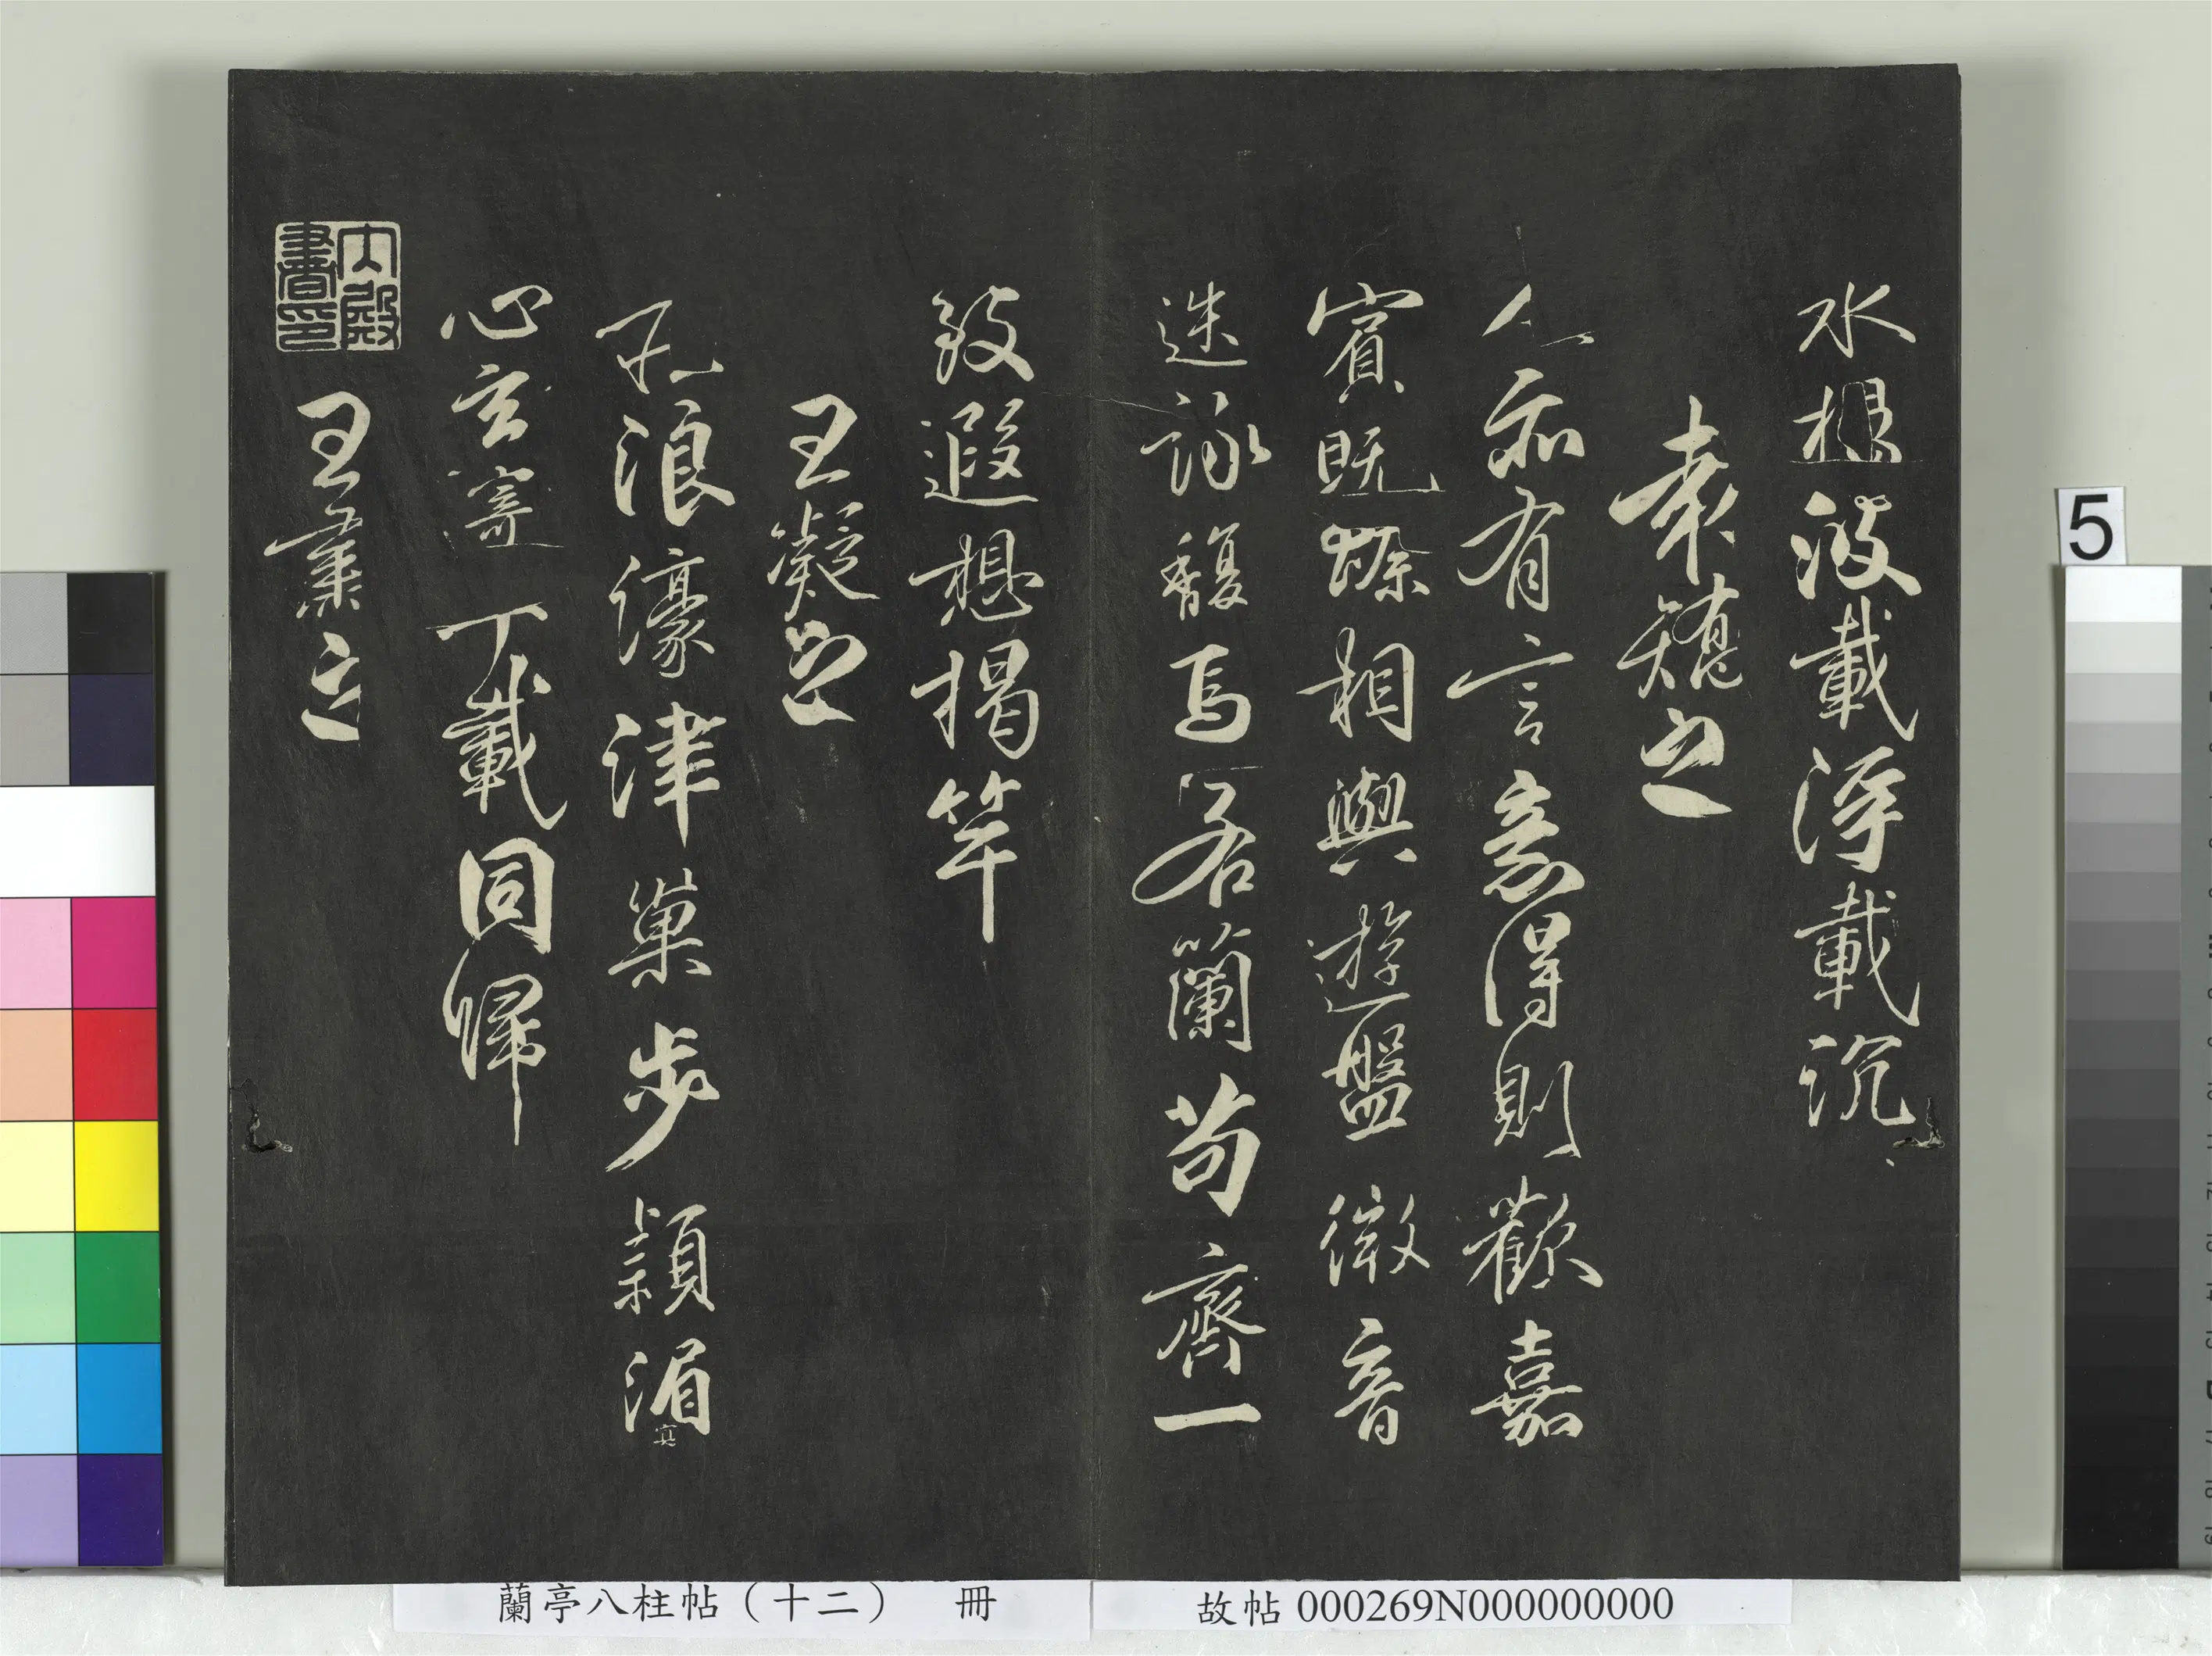 水波載浮載沉
袁之
人亦有言意得則歡嘉
賓既臻相與遊盤微音
迭詠馥焉若蘭苟齊一
致遐想揭竿
王凝之
浪濠津巢步潁湄冥
心玄寄千載同歸
內殿書印
王肅之
5
蘭亭八柱帖（十二） 冊
故帖 000269N000000000